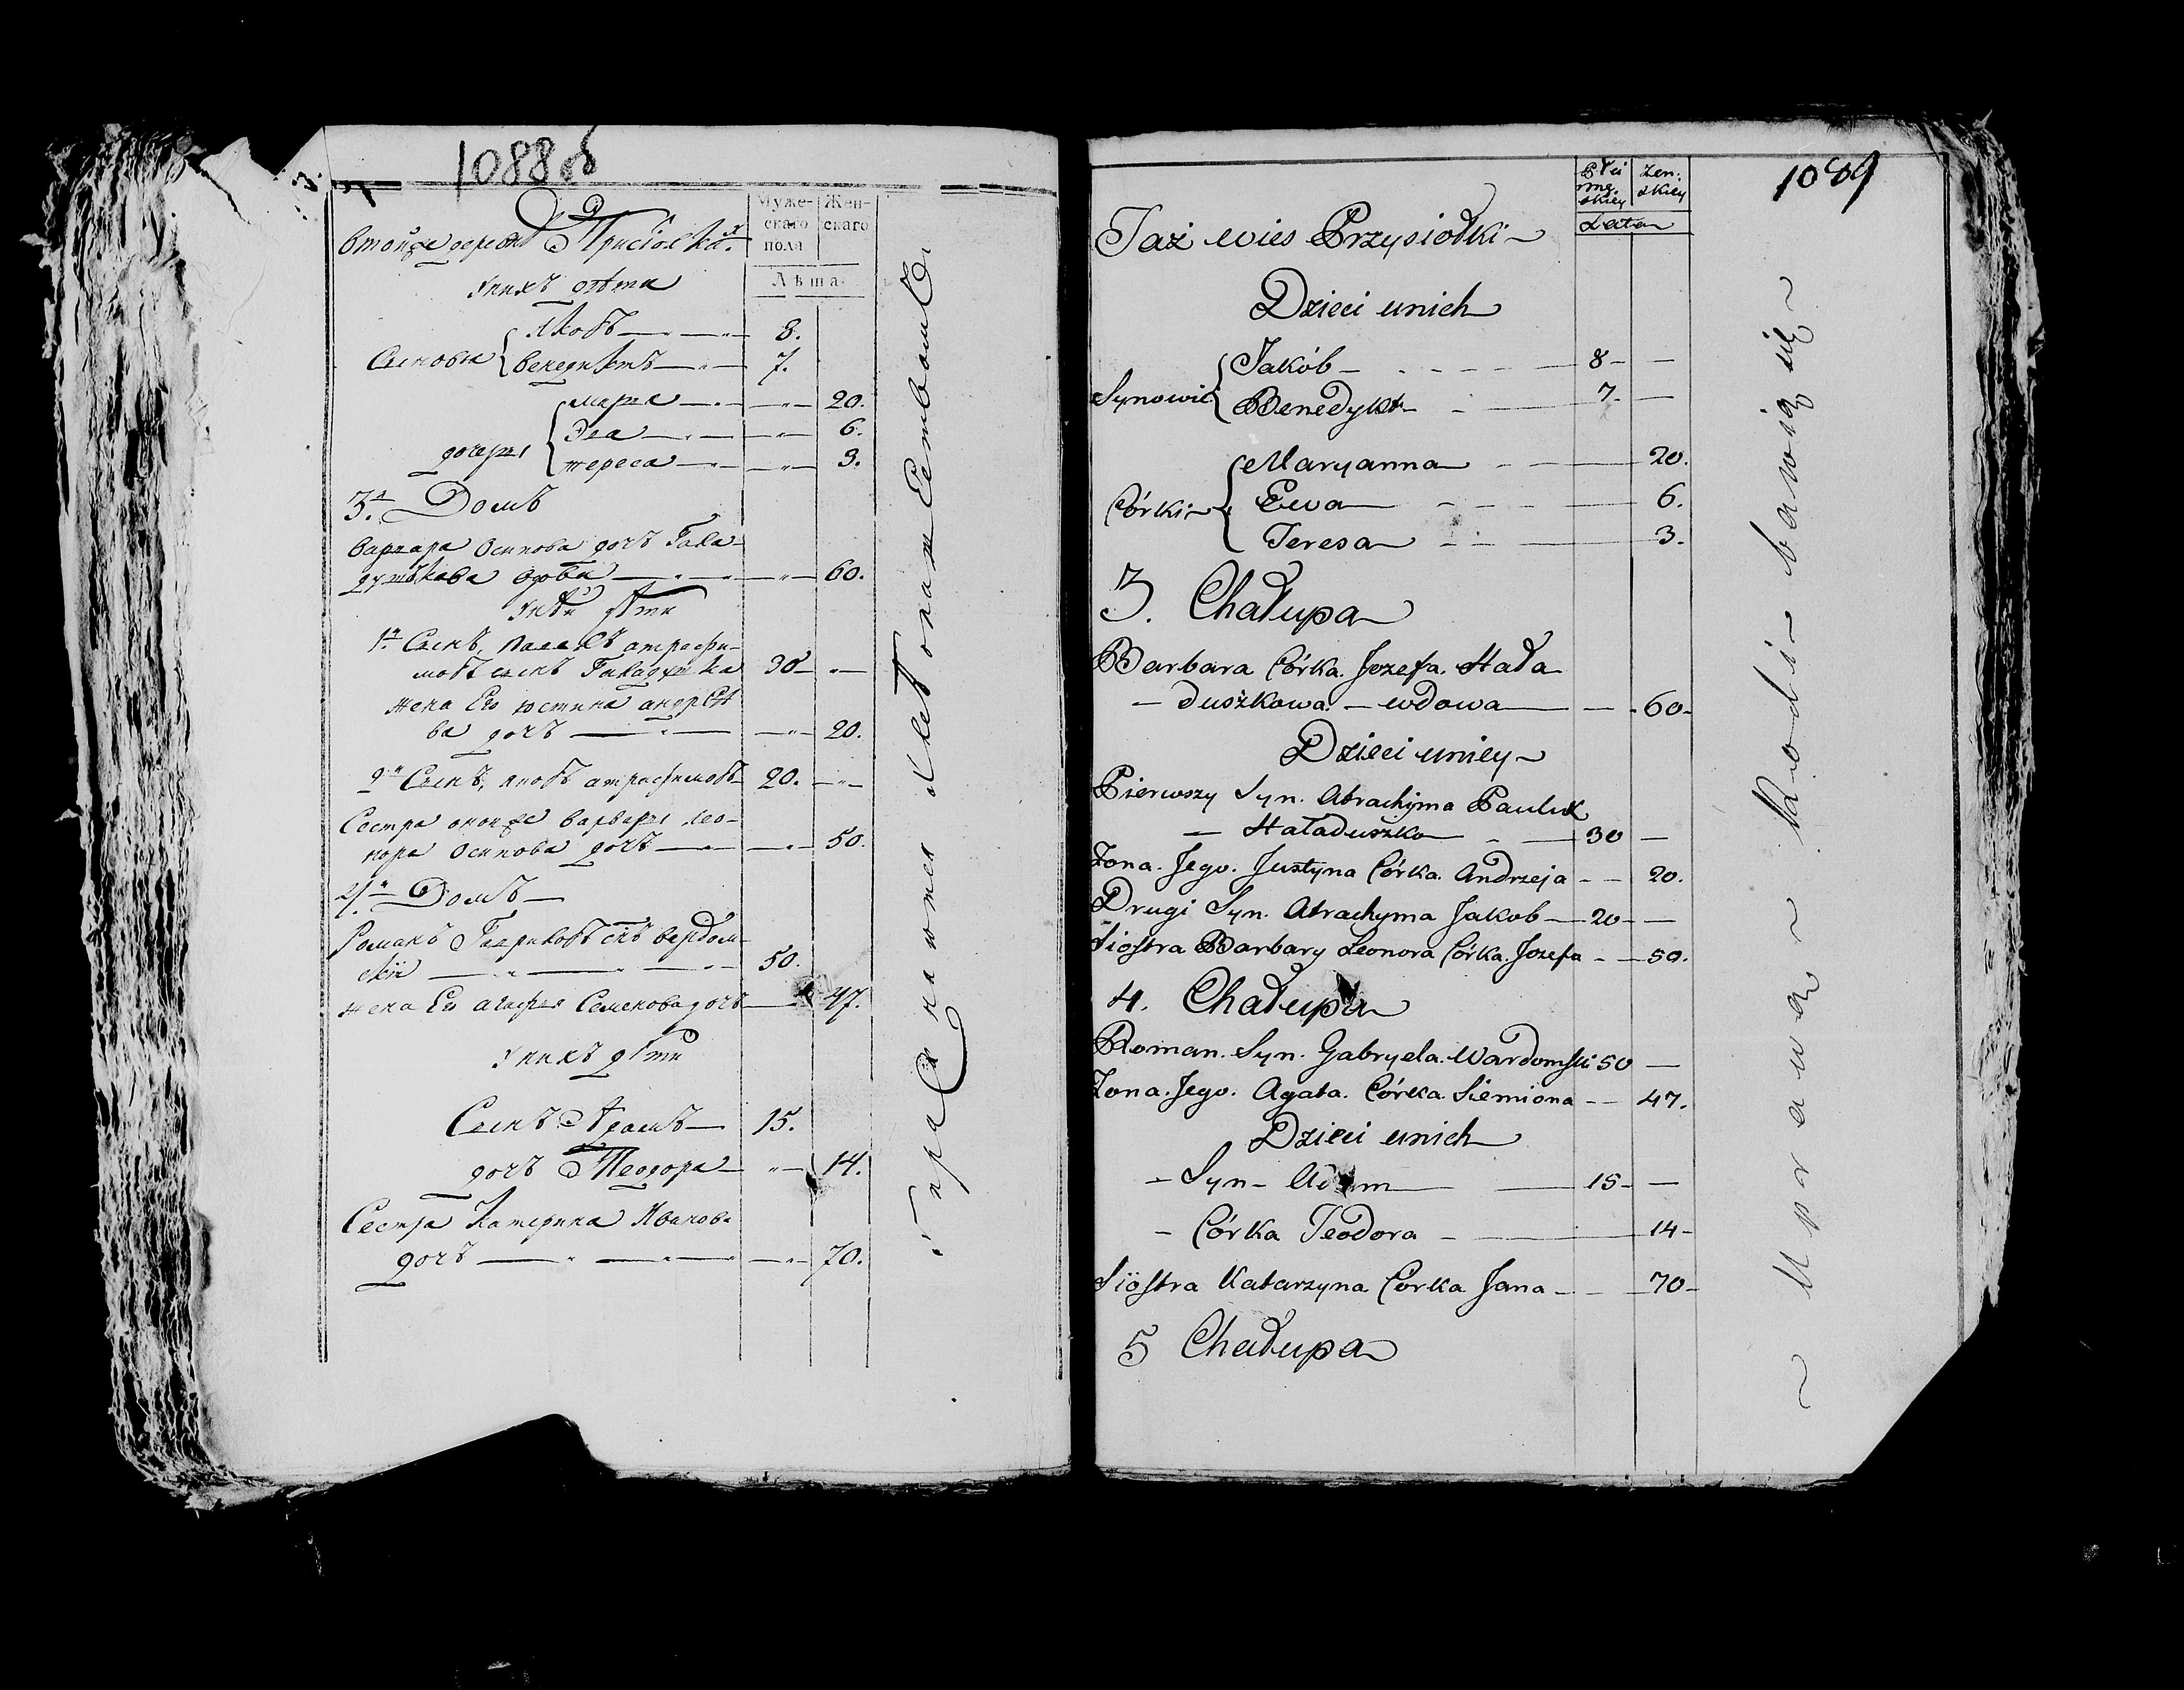 1088об
Муже-
скаго
пола
Жен-
скаго
Лѣта
втойже деревнѣ Присіолкахъ
у нихъ дѣти
Якобъ 8.
Сыновья
Бенедиктъ 7.
марья 20.
Эва 6.
дочери
тереса 3.
3й Домъ
варвара Осипова дочь Гала-
душкова вдова 60.
у ней дѣти
1й Сынъ, Павелъ атрафи-
мовъ сынъ Галадушка 30
жена Его юстина андрѣе-
ва дочь 20.
2й Сынъ, якобъ атрафимовъ 20.
Сестра оной же варвары лео-
нора Осипова дочь 50.
4й Домъ
Романъ Гавриловъ сынъ вердом-
скій 50.
жена Его агафья Семенова дочь 47.
у нихъ дѣти
Сынъ Адамъ 15.
дочь Теодора 14.
Сестра Катерина Иванова
дочь 70.
1089
Płci
mę-
skiey
Żen-
skiey
Lata
Taż wieś Przysiołki
Dzieci unich
Jakób 8
Synowie
Benedykt 7
Maryanna 20.
Córki Ewa 6.
Teresa 3.
3. Chałupa
Barbara Córka Jozefa Hała
duszkowa wdowa 60
Dzieci uniey
Pierwszy Syn Atrachyma Pauluk
Haładuszko 30
Zona Jego Justyna Córka Andrzeja 20.
Drugi Syn Atrachyma Jakob 20
Siostra Barbary Leonora Córka Jozefa 50.
4. Chałupa
Roman Syn Gabryela Wardomski 50
Zona Jego Agata Córka Siemiona 47.
Dzieci unich
Syn Adam 15
Córka Teodora 14
Siostra Katarzyna Córka Jana 70
5 Chałupa